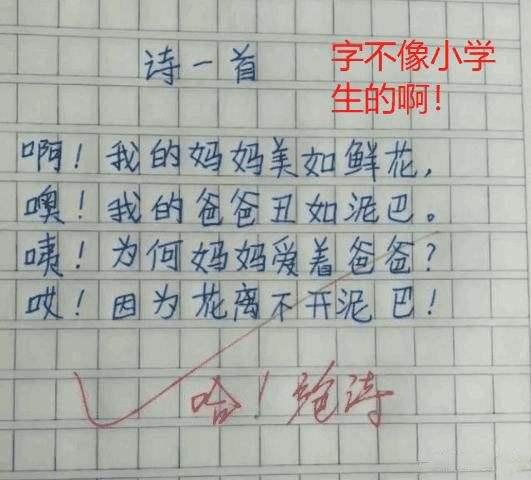 诗一首
字不像小学
生的啊!
啊!我的妈妈美如鲜花,
噢!我的爸爸丑如泥巴。
咦!为何妈妈爱着爸爸?
哎!因为花离不开泥巴!
哈!绝诗